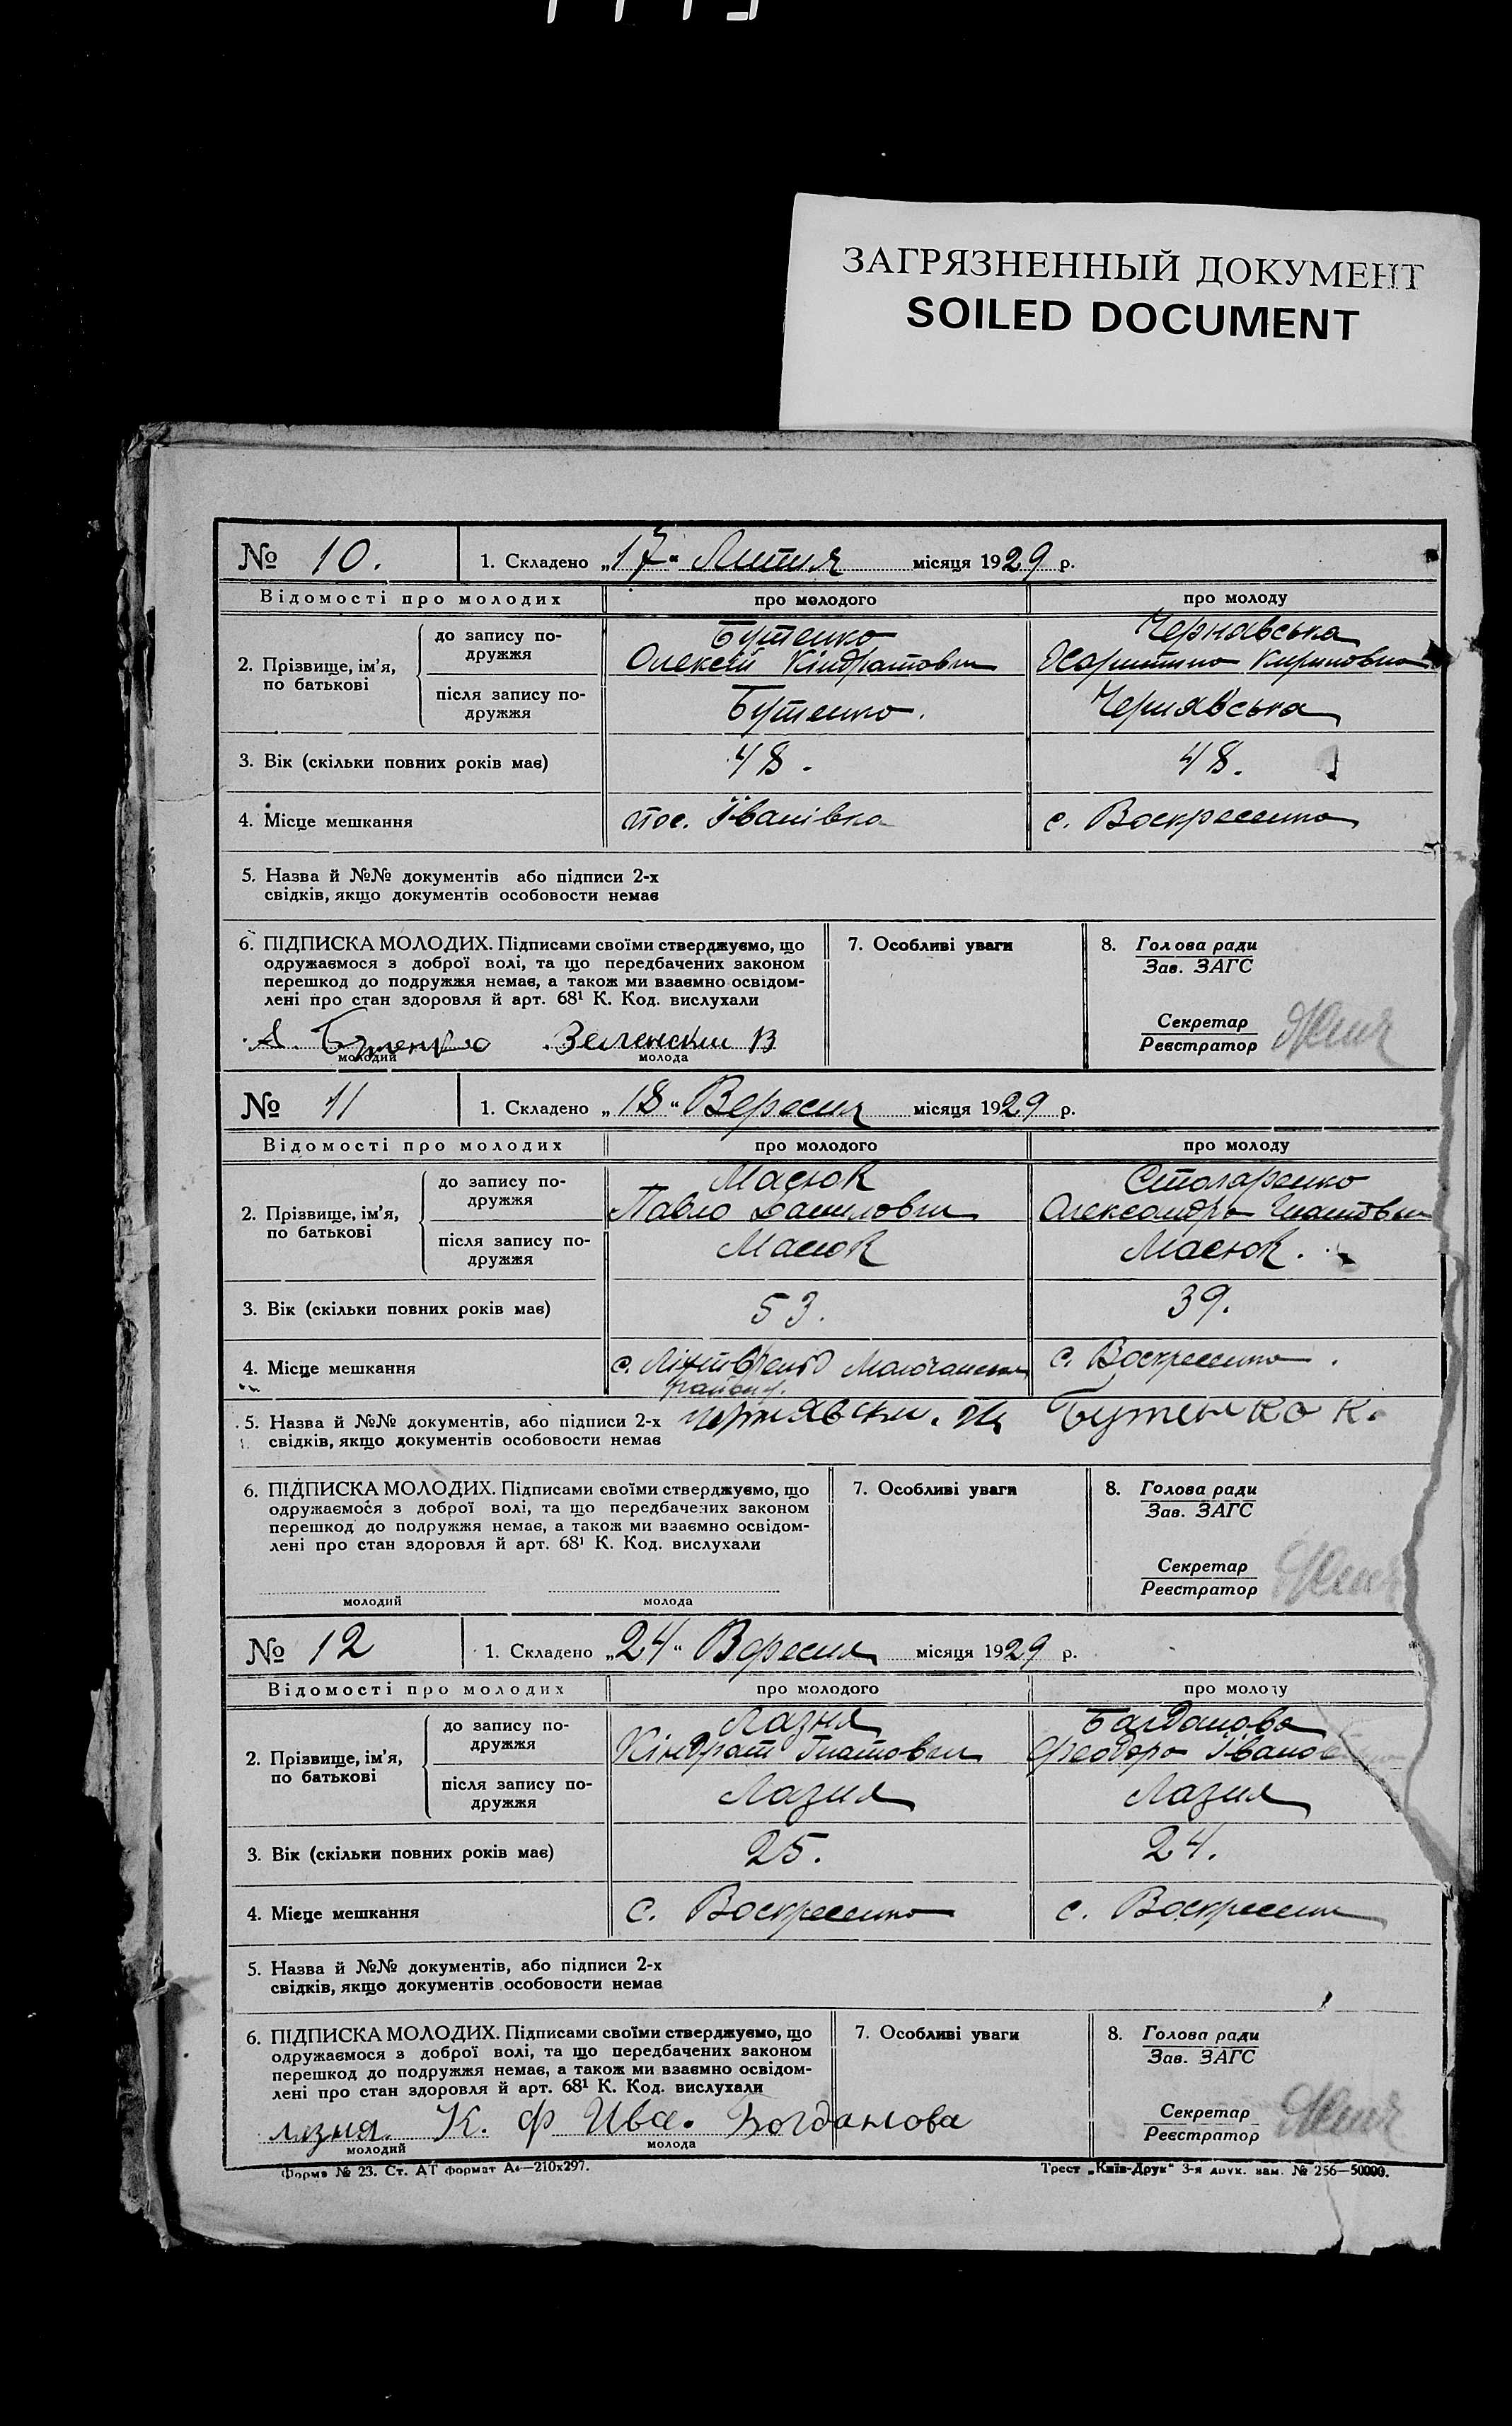 ЗАГРЯЗНЕННЫЙ ДОКУМЕНТ
SOILED DOCUMENT
№ 10. 1. Складено „17“ Липня місяця 1929 р.
Відомості про молодих про молодого про молоду
2. Прізвище, ім’я, по батькові
до запису по-
дружжя
Бутенко
Олексій Кіндратович
Чернявська
Харитина Кириловна
після запису по-
дружжя
Бутенко.
Чернявська
3. Вік (скільки повних років має) 48. 48.
4. Місце мешкання пос. Іванівка с. Воскресенка
5. Назва й №№ документів або підписи 2-х
свідків, якщо документів особовости немає
6. ПІДПИСКА МОЛОДИХ. Підписами своїми стверджуємо, що
одружаємося з доброї волі, та що передбачених законом
перешкод до подружжя немає, а також ми взаємно освідом-
лені про стан здоровля й арт. 68¹ К. Код. вислухали
А. Бутенко Зеленский В
молодий молода
7. Особливі уваги
8. Голова ради
Зав. ЗАГС
Секретар
Реєстратор
№ 11 1. Складено „18“ Вересня місяця 1929 р.
Відомості про молодих про молодого про молоду
2. Прізвище, ім’я,
по батькові
до запису по-
дружжя
Масюк
Павло Данилович
Столяренко
Олександра Гнатовна
після запису по-
дружжя
Масюк
Масюк.
3. Вік (скільки повних років має) 53. 39.
4. Місце мешкання с. Молочанськ с. Воскресенка.
району.
5. Назва й №№ документів, або підписи 2-х
свідків, якщо документів особовости немає
Чернявский. Бутенко К.
6. ПІДПИСКА МОЛОДИХ. Підписами своїми стверджуємо, що
одружаємося з доброї волі, та що передбачених законом
перешкод до подружжя немає, а також ми взаємно освідом-
лені про стан здоровля й арт. 68¹ К. Код. вислухали
молодий молода
7. Особливі уваги
8. Голова ради
Зав. ЗАГС
Секретар
Реєстратор
№ 12 1. Складено „24“ Вересня місяця 1929 р.
Відомості про молодих про молодого про молоду
2. Прізвище, ім’я,
по батькові
до запису по-
дружжя
Лазня
Кіндрат Гнатович
Багданова
Феодора Іванов
після запису по-
дружжя
Лазня
Лазня
3. Вік (скільки повних років має) 25. 24.
4. Місце мешкання с. Воскресенка с. Воскресенка
5. Назва й №№ документів, або підписи 2-х
свідків, якщо документів особовости немає
6. ПІДПИСКА МОЛОДИХ. Підписами своїми стверджуємо, що
одружаємося з доброї волі, та що передбачених законом
перешкод до подружжя немає, а також ми взаємно освідом-
лені про стан здоровля й арт. 68¹ К. Код. вислухали
лазня К. Ф Ива. Богданова
молодий молода
7. Особливі уваги
8. Голова ради
Зав. ЗАГС
Секретар
Реєстратор
Форма № 23. Ст. АТ формат А4—210х297.
Трест „Київ-Друк“ 3-я друк. зам. № 256—50000.